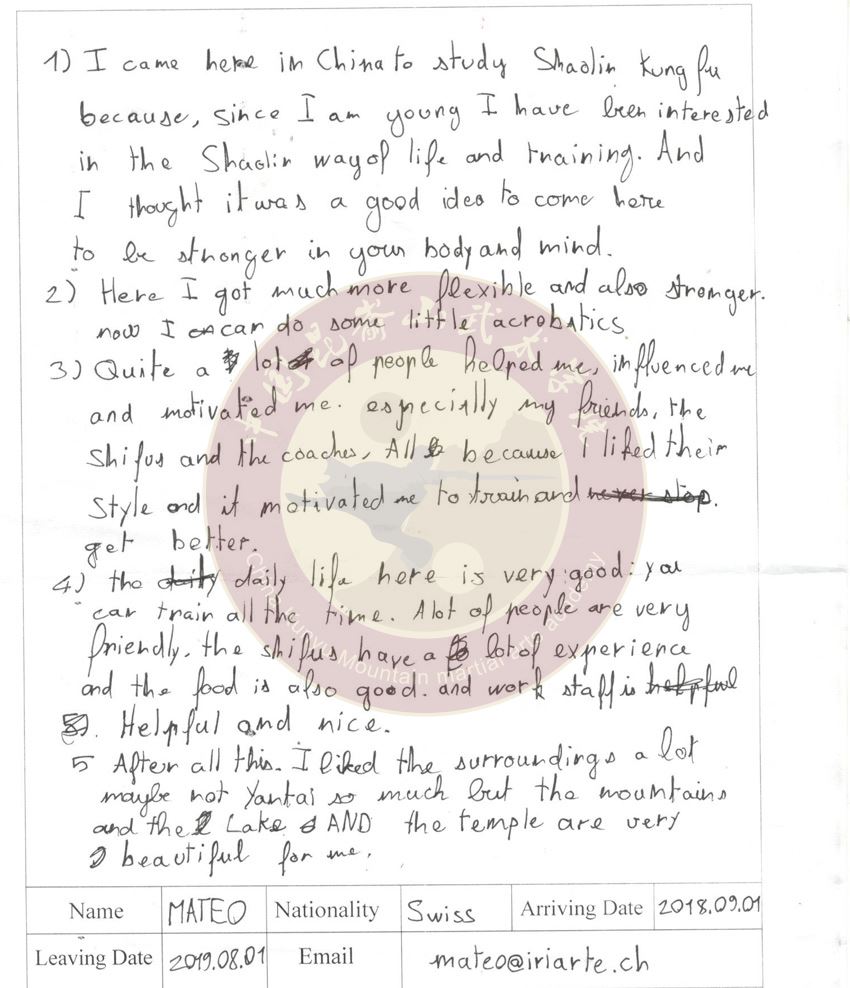 1) I came here in China to study Shaolin Kung fu
because, since I am young I have been interested
in the Shaolin way of life and training. And
I thought it was a good idea to come here
to be stronger in your body and mind.
2) Here I got much more flexible and also stronger.
now I can do some little acrobatics
3) Quite a lot of people helped me, influenced me
and motivated me. especially my friends, the
Shifus and the coaches, All because I liked their
style and it motivated me to train and never stop.
get better.
4) the daily daily life here is very good: you
can train all the time. A lot of people are very
friendly, the shifus have a lot of experience
and the food is also good. and work staff is helpful
Helpful and nice.
5 After all this. I liked the surroundings a lot
maybe not Yantai so much but the mountains
and the Lake AND the temple are very
beautiful for me.
Name MATEO Nationality Swiss Arriving Date 2018.09.01
Leaving Date 2019.08.01 Email mateo@iriarte.ch
中国昆嵛山武术学校
China Kunyu Mountain martial arts academy